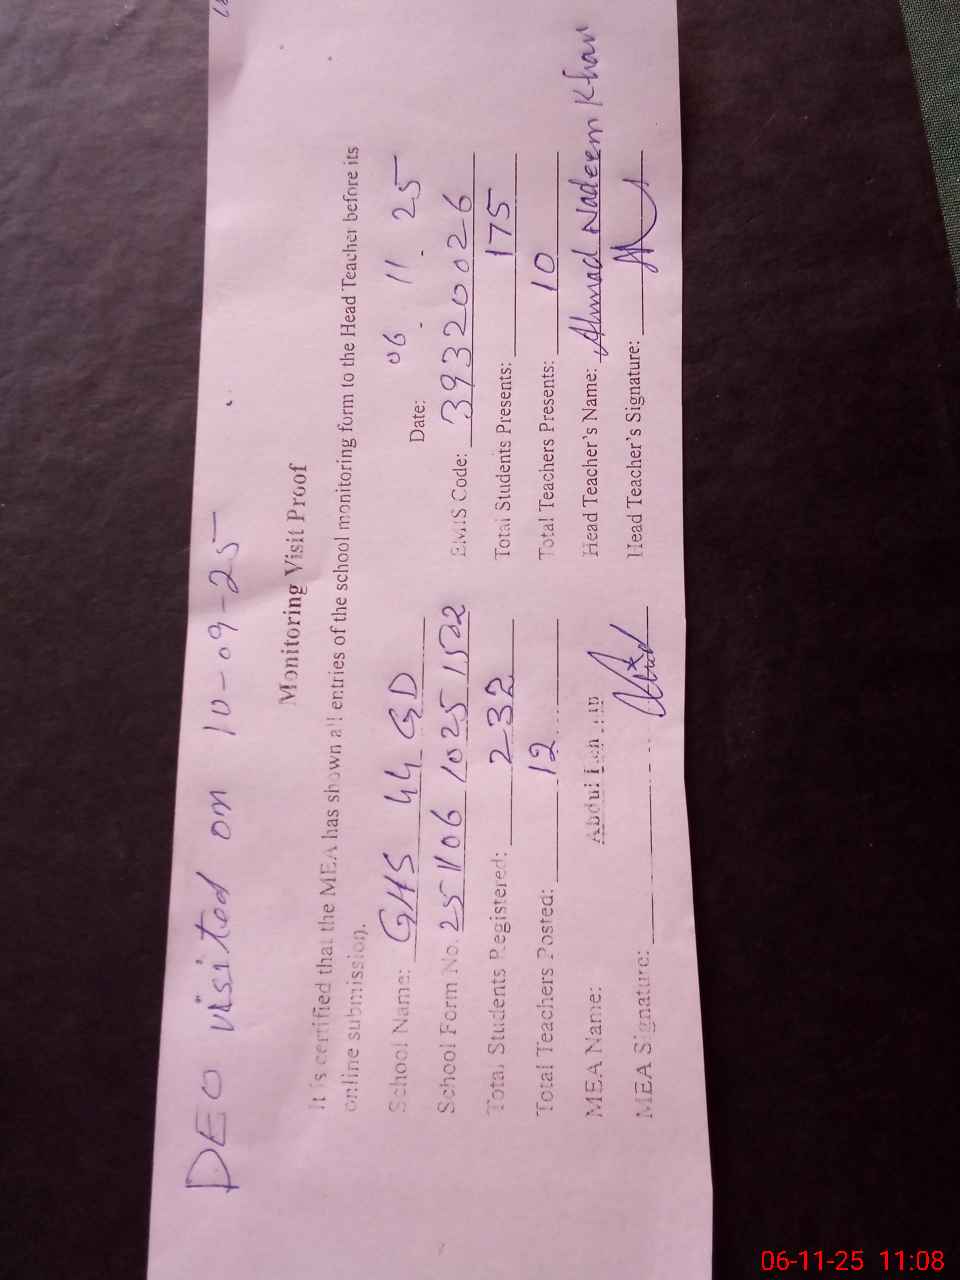 DEO visited on 10-09-25
Monitoring Visit Proof
It is certified that the MEA has shown all entries of the school monitoring form to the Head Teacher before its
online submission).
School Name: GHS 44 GD Date: 06 - 11 - 25
School Form No. 251106 1025 1522 EMIS Code: 39320026
Total Students Registered: 232 Total Students Presents: 175
Total Teachers Posted: 12 Total Teachers Presents: 10
MEA Name: Abdul Head Teacher's Name: Ahmad Nadeem Khan
MEA Signature: Head Teacher's Signature:
06-11-25 11:08